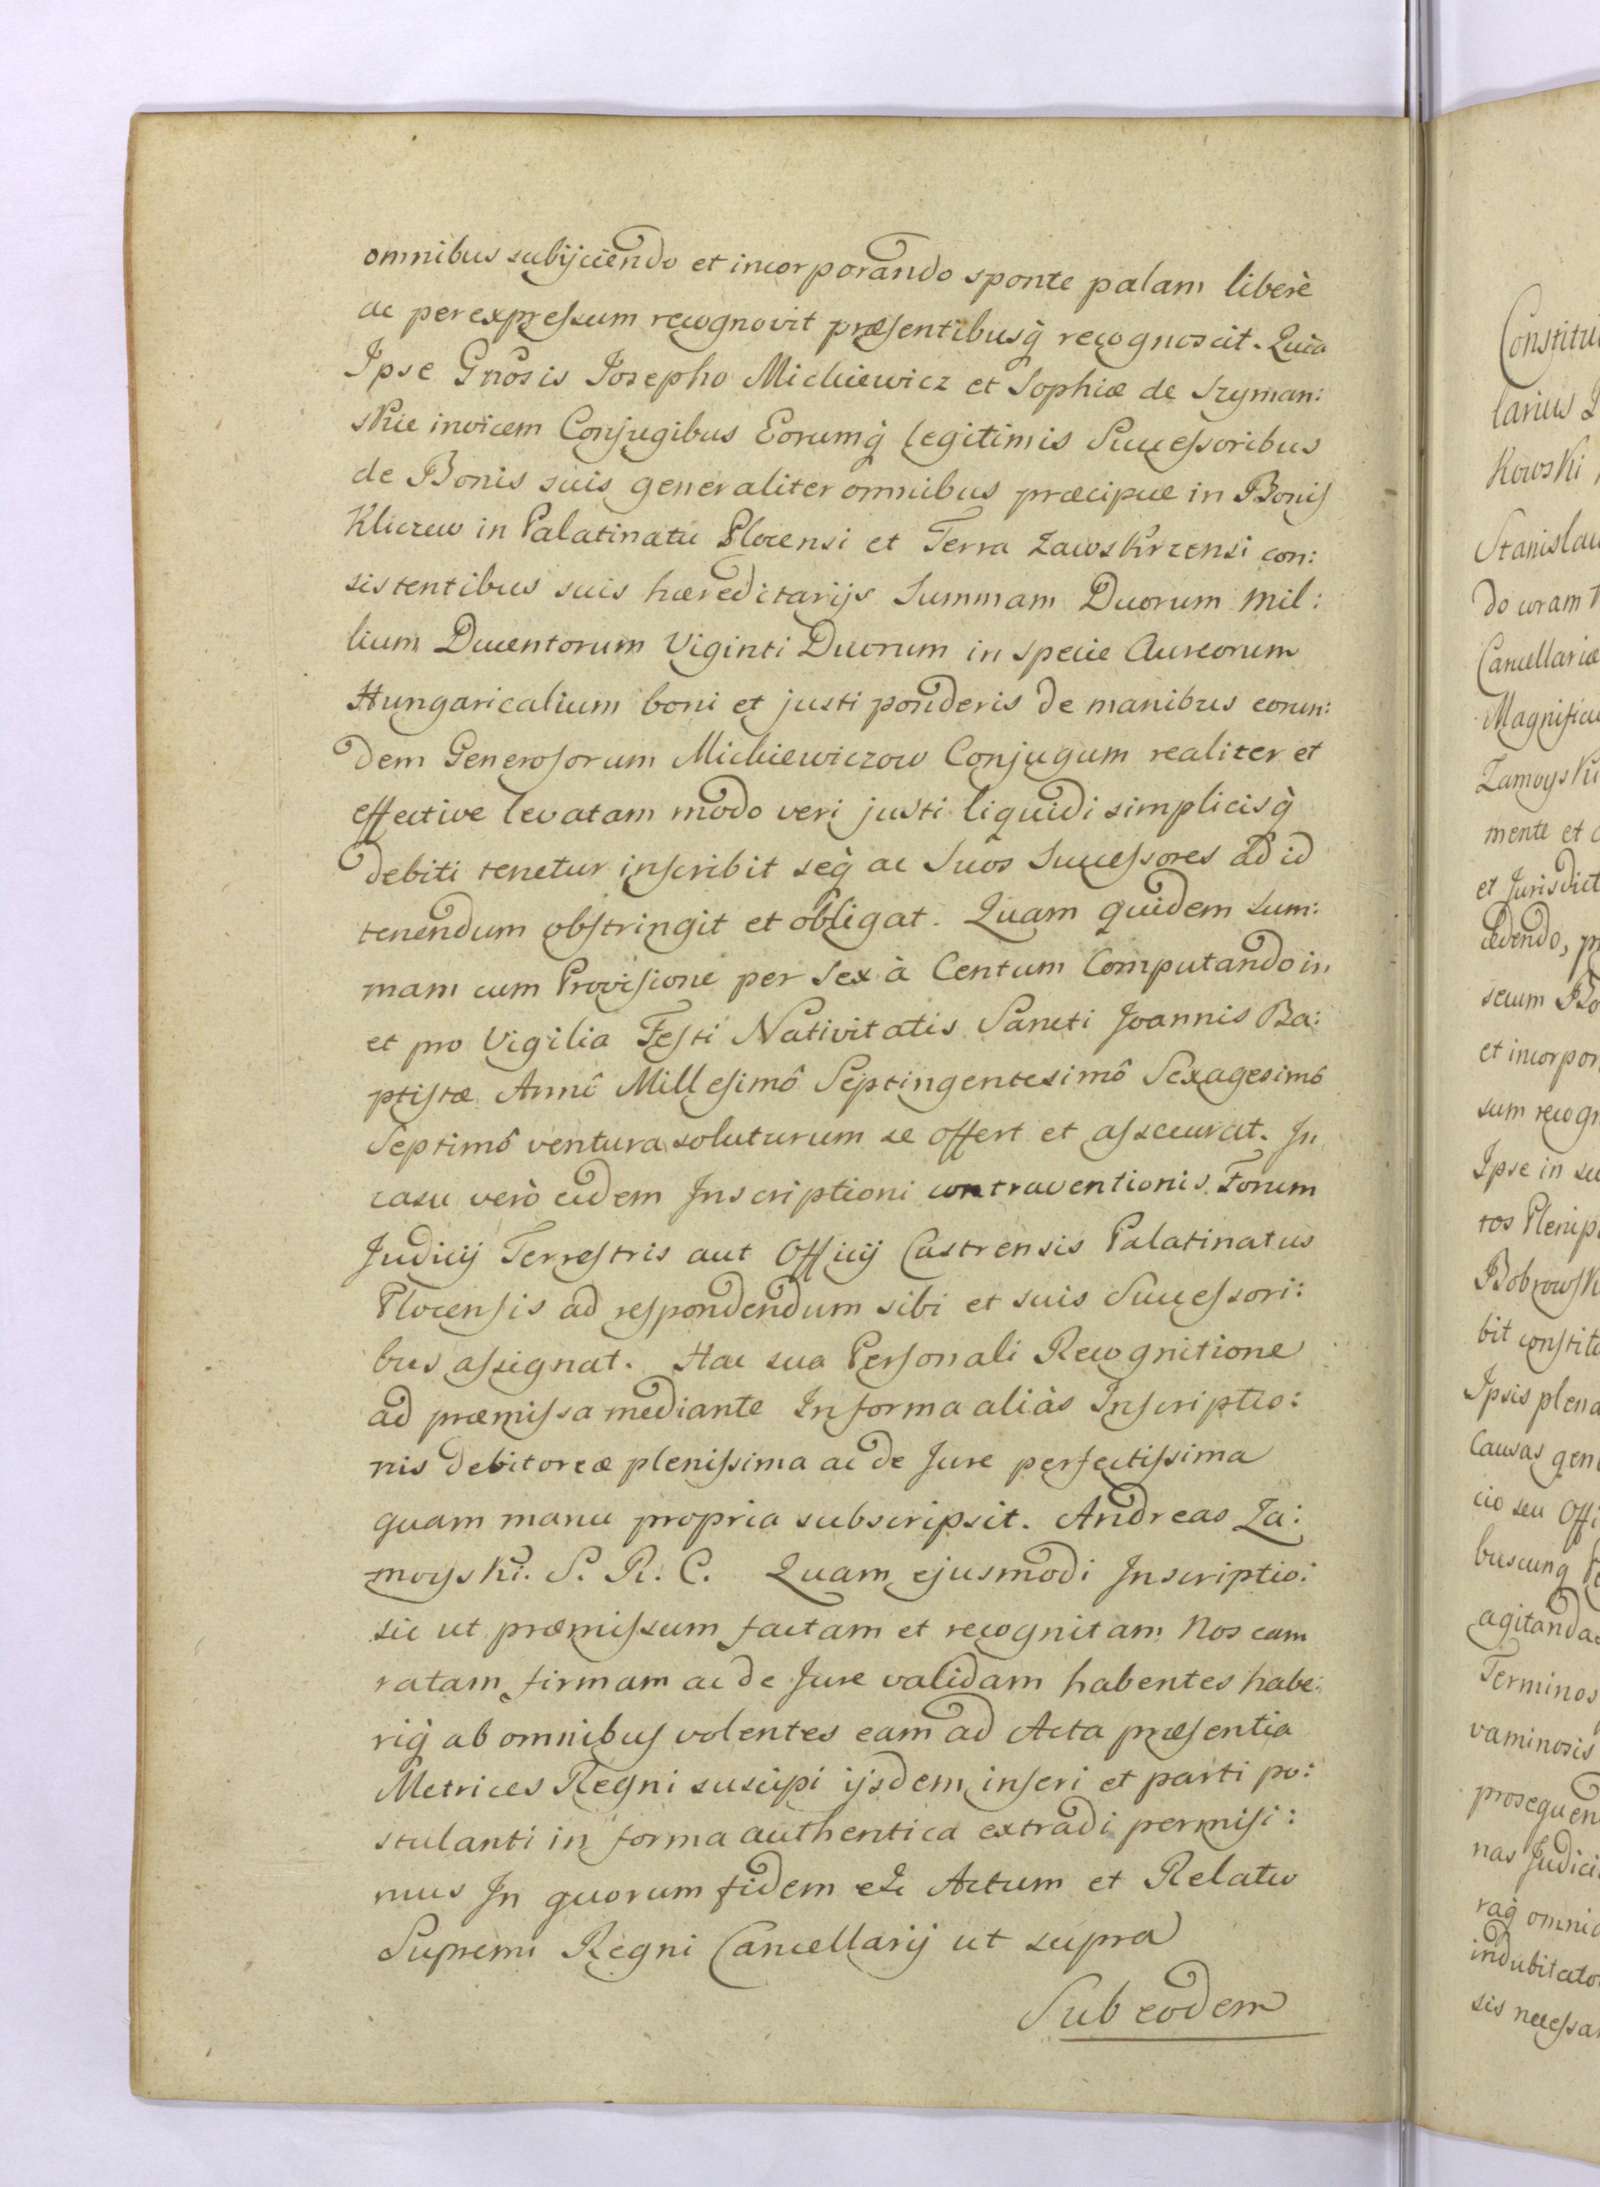 omnibus subijciendo et incorporando sponte palam liberè
ac per expressum recognovit præsentibusq̀ recognoscit. Quia
Ipse Gnosis Josepho Mickiewicz et Sophiæ de Szyman:
skie invicem Conjugibus Eorumq̀ legitimis Successoribus
de Bonis suis generaliter omnibus præcipue in Bonis
Kliczew in Palatinatu Plocensi et Terra Zawskrzensi con:
sistentibus suis hæreditarijs Summam Duorum Mil:
lium Ducentorum Viginti Duorum in specie Aureorum
Hungaricalium boni et justi ponderis de manibus eorun:
dem Generosorum Mickiewiczow Conjugum realiter et
effective levatam modo veri justi liquidi simplicisq̀
debiti tenetur inscribit seq̀ ac Suos Successores ad id
tenendum obstringit et obligat. Quam quidem Sum:
mam cum Provisione per Sex à Centum Computando in
et pro Vigilia Festi Nativitatis Sancti Joannis Ba:
ptistæ Anni Millesimô Septingentesimô Sexagesimô
Septimô ventura soluturum se offert et assecurat. In
casu verò eidem Inscriptioni contraventionis Forum
Judicij Terrestris aut Officij Castrensis Palatinatus
Plocensis ad respondendum sibi et suis Successori:
bus assignat. Hac sua Personali Recognitione
ad præmissa mediante In forma aliàs Inscriptio:
nis debitoreæ plenissima ac de Jure perfectissima
quam manu propria subscripsit. Andreas Za:
moyski. S. R. C. Quam ejusmodi Inscriptio:
sic ut præmissum factam et recognitam Nos eam
ratam firmam ac de Jure validam habentes habe:
riq̀ ab omnibus volentes eam ad Acta præsentia
Metrices Regni suscipi ijsdem inseri et parti po:
stulanti in forma authentica extradi permisi:
mus In quorum fidem etc Actum et Relatio
Supremi Regni Cancellarij ut supra
Sub eodem
Constitu
larius
kowski
Stanislau
do coram
Cancellariæ
Magnificu
Zamoyski
mente et
et Jurisdict
cedendo, p
secum Bo
et incorpor
sum recog
Ipse in su
tos Plenip
Bobrowsk
bit constit
Ipsis plena
Causas gen
cio seu Offi
buscunq
agitanda
Terminos
vaminosis
prosequen
nas Judici
raq̀ omnia
indubitato
sis necessa